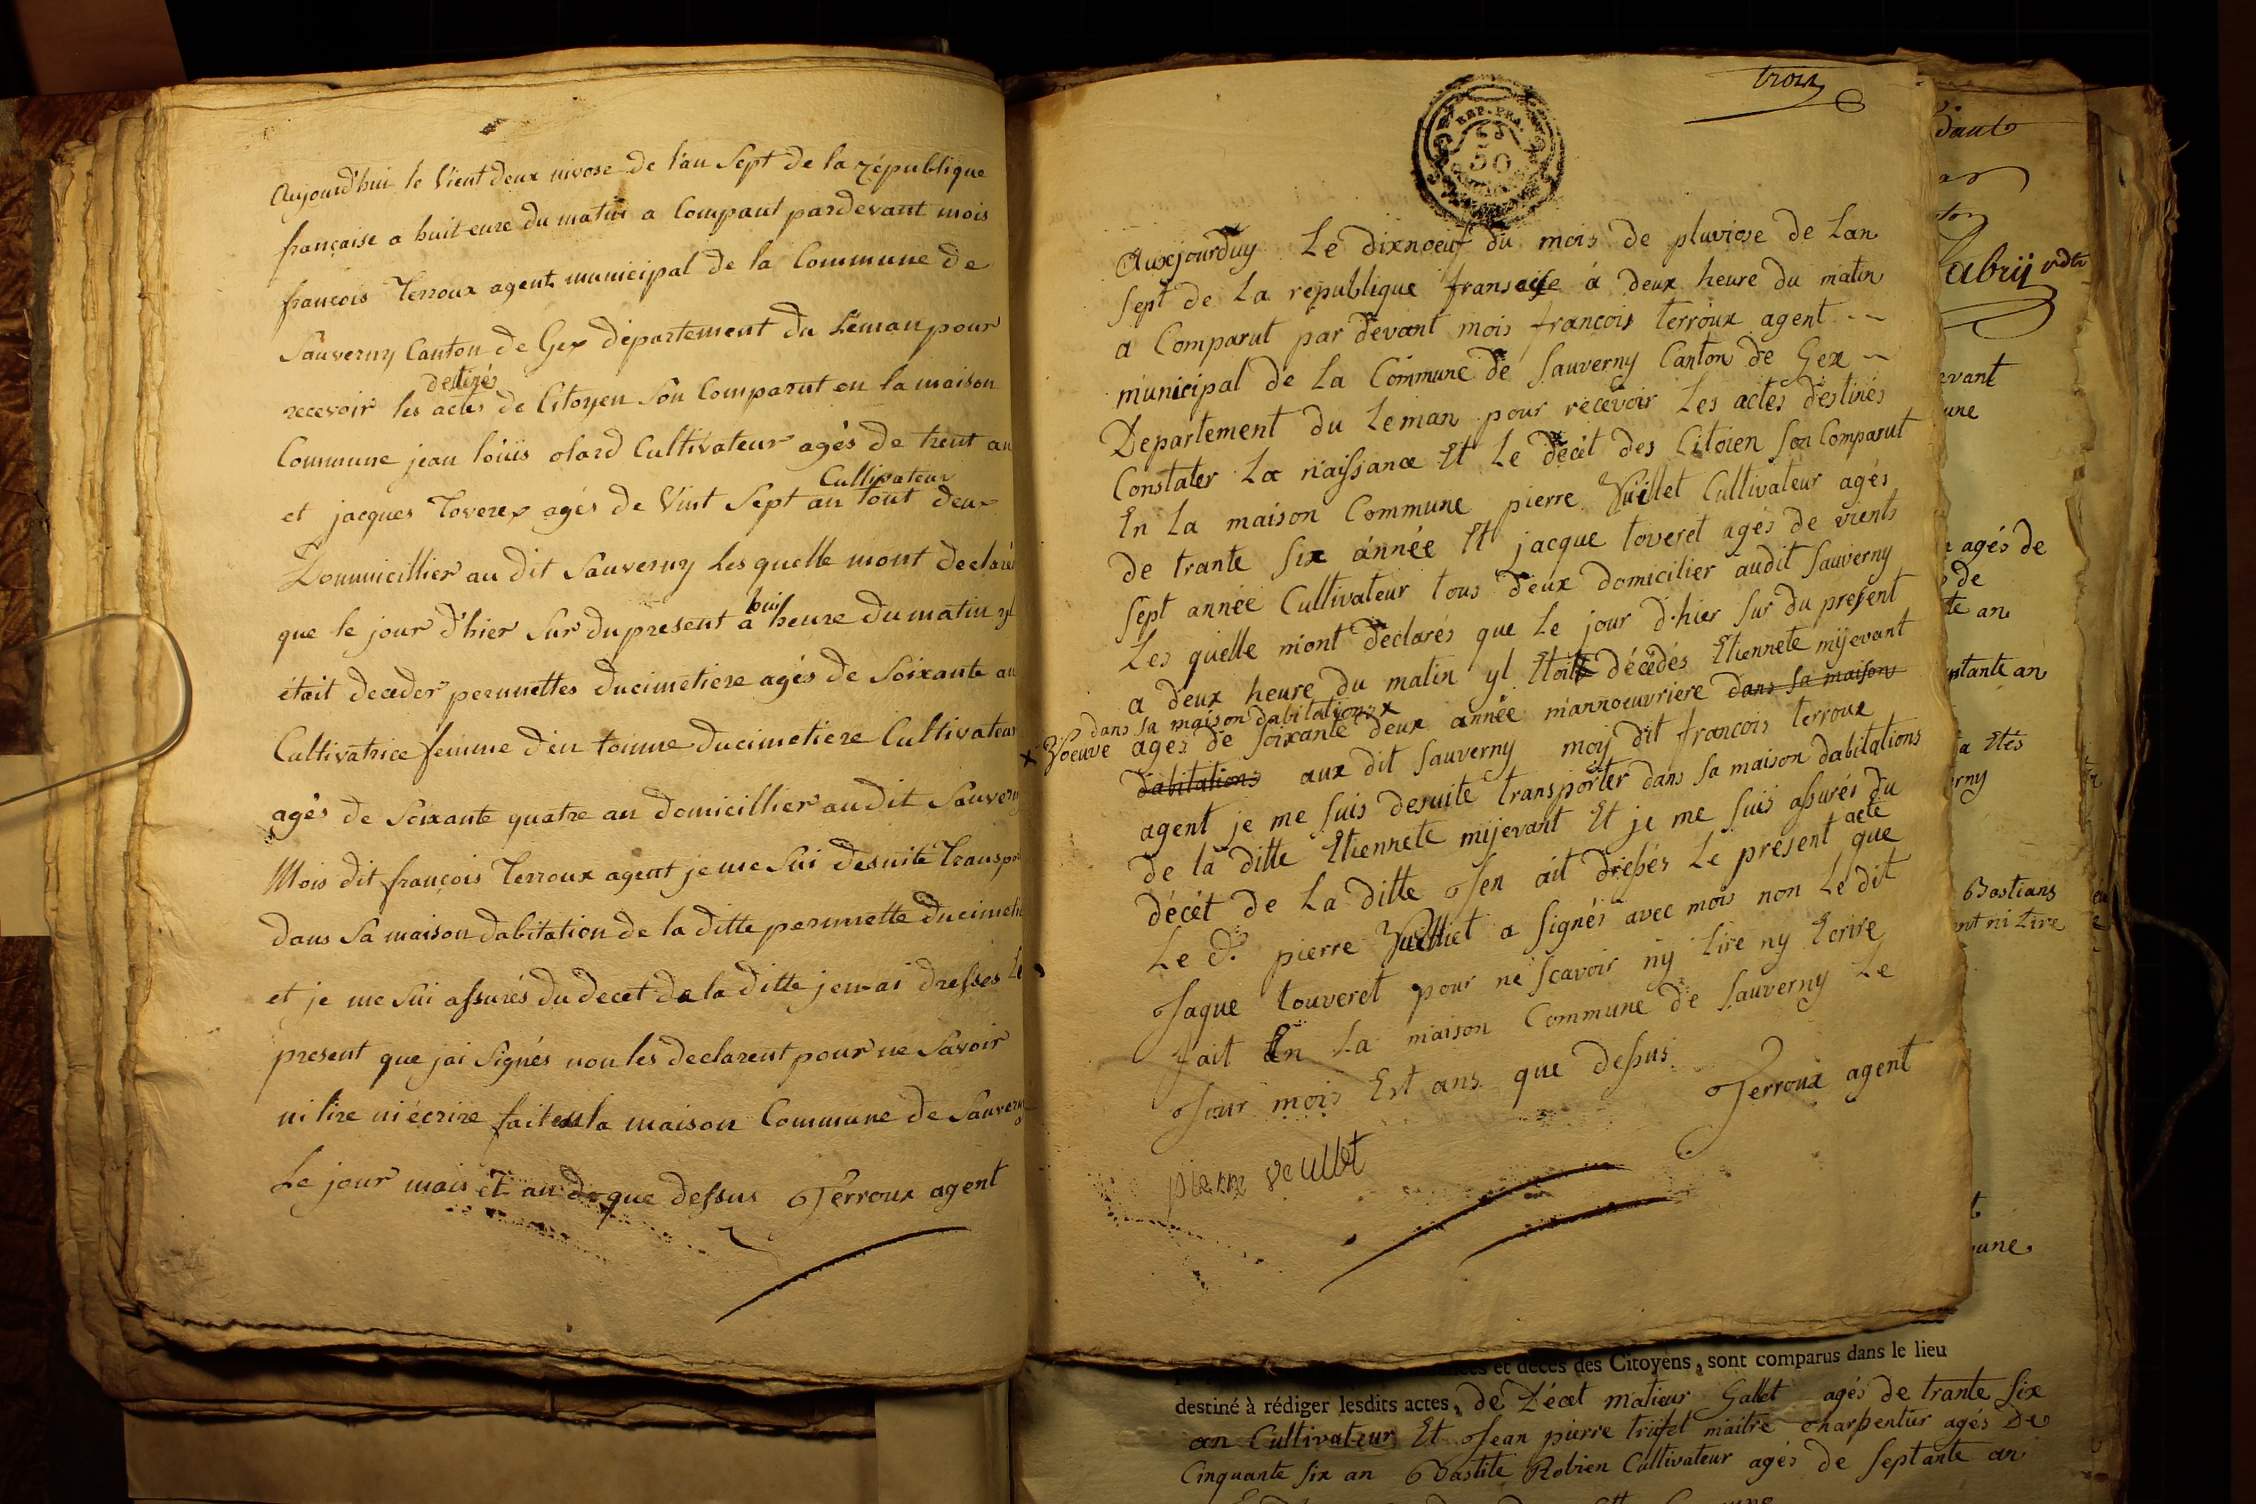 Aujourd'hui le Vient deux nivose de l'an Sept de la république
française a huit eure du matin a Comparut pardevant mois
françois Terroux agent municipal de la Commune de
Sauverny Canton de Gex departement du Léman pour
destinés
recevoir les actes de Citoyen Son Comparut en la maison
Commune jean loüis olard Cultivateur agés de trent an
Cultivateur
et jacques Toverex agés de Vint Sept an tout deux
Dommicillier au dit Sauverny Les quelle mont declaré
hui
que le jour d'hier Sur du present a heure du matin yl
était deceder pernnettes ducimetiere agés de Soixante an
Cultivatrice femme d'eu toinne Ducimetiere Cultivateur
agés de Soixante quatre an domicillier au dit Sauverny
Mois dit françois Terroux agent je me Sui desuite Transpor
dans Sa maison dabitation de la ditte pernnette Ducimetie
et je me Sui assurés du decet de la ditte jen ai dresses Le
present que jai Signés non les declarent pour ne Savoir
ni lire ni écrire fait en la maison Commune de Sauverny
Le jour mois et an que dessus Terroux agent
trois
REP. FRA.
50
Auxjourduy Le dixnoeuf du mois de pluviose de Lan
Sept de La republique fransaise á deux heure du matin
a Comparut par devant mois françois terroux agent
municipal de La Commune de Sauverny Canton de Gex
Departement du Leman pour recevoir Les actes destinés
Constater La naissance Et Le décét des Citoien Son Comparut
En La maison Commune pierre Vuillet Cultivateur agés
de trante Six année Et jacque toveret agés de vients
Sept année Cultivateur tous deux domicilier audit Sauverny
Les quelle mont déclarés que Le jour d'hier Sur du present
a deux heure du matin yl Etoit décédés Etiennete mijevant
dans sa maison dabitations x
x Voeuve agés de Soixante deux année mannoeuvriere dans sa maison
d'abitations aux dit Sauverny moy dit françois terroux
agent je me Suis desuite transporter dans Sa maison dabitations
de la ditte Etiennete mijevant Et je me Suis assurés du
décét de La ditte Jen ait dressés Le présent acte que
Le d. pierre Vuilliet a Signés avec mois non Le dit
Jaque touveret pour ne Scavoir ny Lire ny Ecrire
fait En La maison Commune de Sauverny Le
Jour mois Est ans que dessus Terroux agent
pierre veullet
abrij
evant
une
agés de
de
te an
ptante an
a Etés
erny
Bastians
nt ni Lire
une
et décès des Citoyens, sont comparus dans le lieu
destiné à rédiger lesdits actes, de Décet matieur Gallet agés de trante Six
an Cultivateur Et Jean pierre trufet maitre Charpentier agés De
Cinquante Six an Bastite Robien Cultivateur agés de Septante an